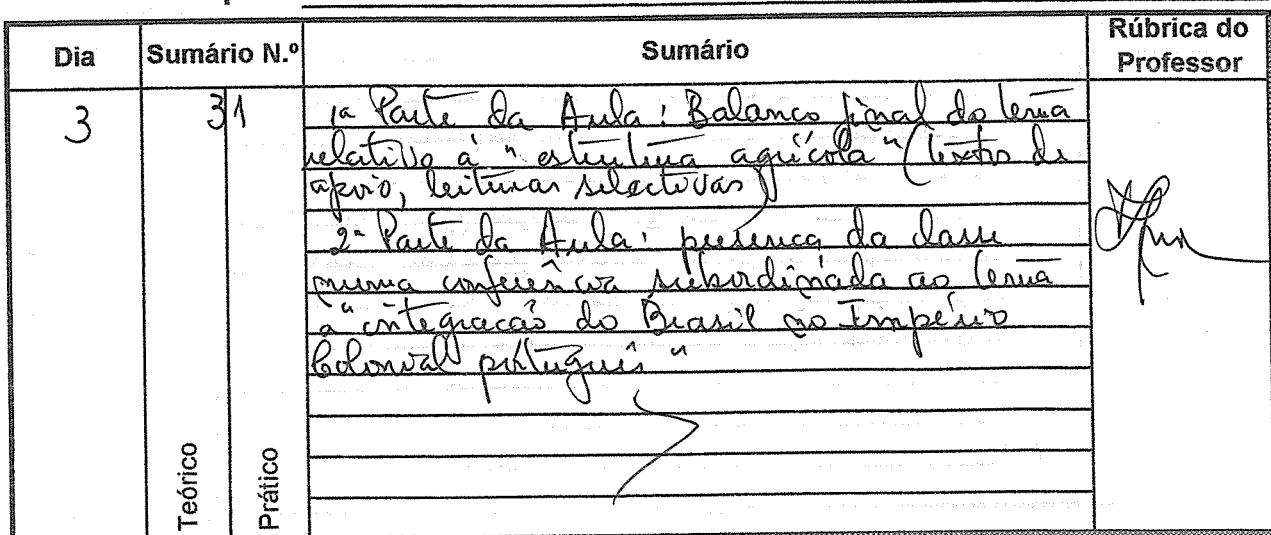 Dia Sumário N.º Sumário Rúbrica do Professor
3 31
1ª Parte da Aula: Balanço final do tema
relativo à "estrutura agrícola" (textos de
apoio, leituras selectivas)
2ª Parte da Aula: presença da classe
numa conferência subordinada ao tema
a "integração do Brasil no Império
Colonial português"
Teórico
Prático